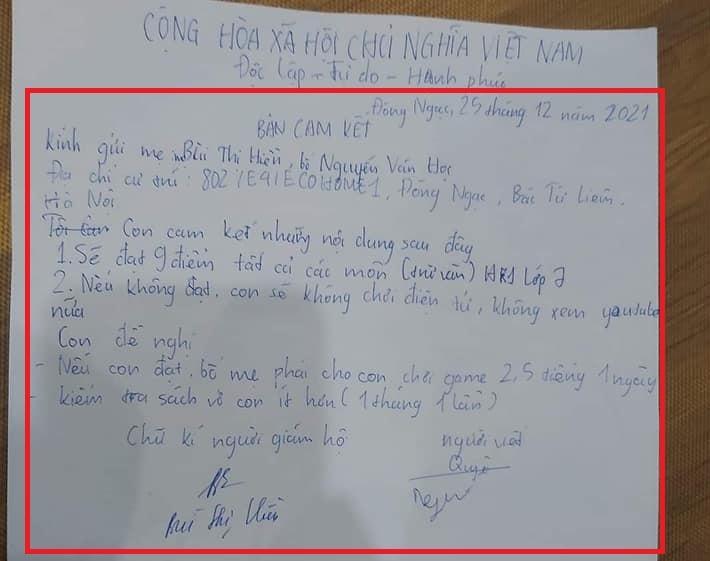 CỘNG HÒA XÃ HỘI CHỦ NGHĨA VIỆT NAM
Độc lập - Tự do - Hạnh phúc
Đông Ngạc, 25 tháng 12 năm 2021
BẢN CAM KẾT
Kính gửi mẹ Bùi Thị Hiền, bố Nguyễn Văn Học
Địa chỉ cư trú: 802 /E4/ECOHOME1, Đông Ngạc, Bắc Từ Liêm.
Hà Nội
Con cam kết những nội dung sau đây
1. Sẽ đạt 9 điểm tất cả các môn (trừ văn) HK1 Lớp 7
2. Nếu không đạt, con sẽ không chơi điện tử, không xem youtube
nữa
Con đề nghị
- Nếu con đạt, bố mẹ phải cho con chơi game 2,5 tiếng 1 ngày
- kiểm tra sách vở con ít hơn (1 tháng 1 lần)
Chữ kí người giám hộ
người viết
Bùi Thị Hiền